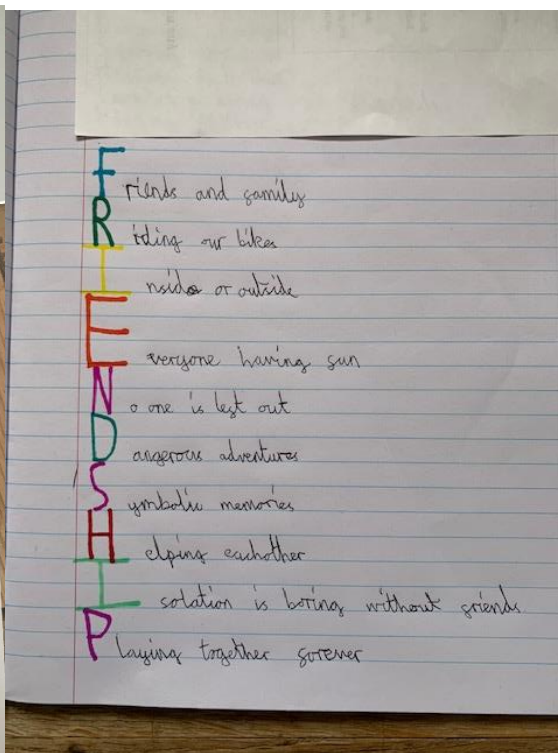 Friends and family
Riding our bikes
Inside or outside
Everyone having fun
No one is left out
Dangerous adventures
Symbolic memories
Helping eachother
Isolation is boring without friends
Playing together forever